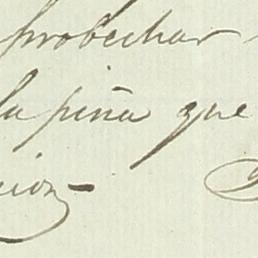 probechar
la piña que
cion